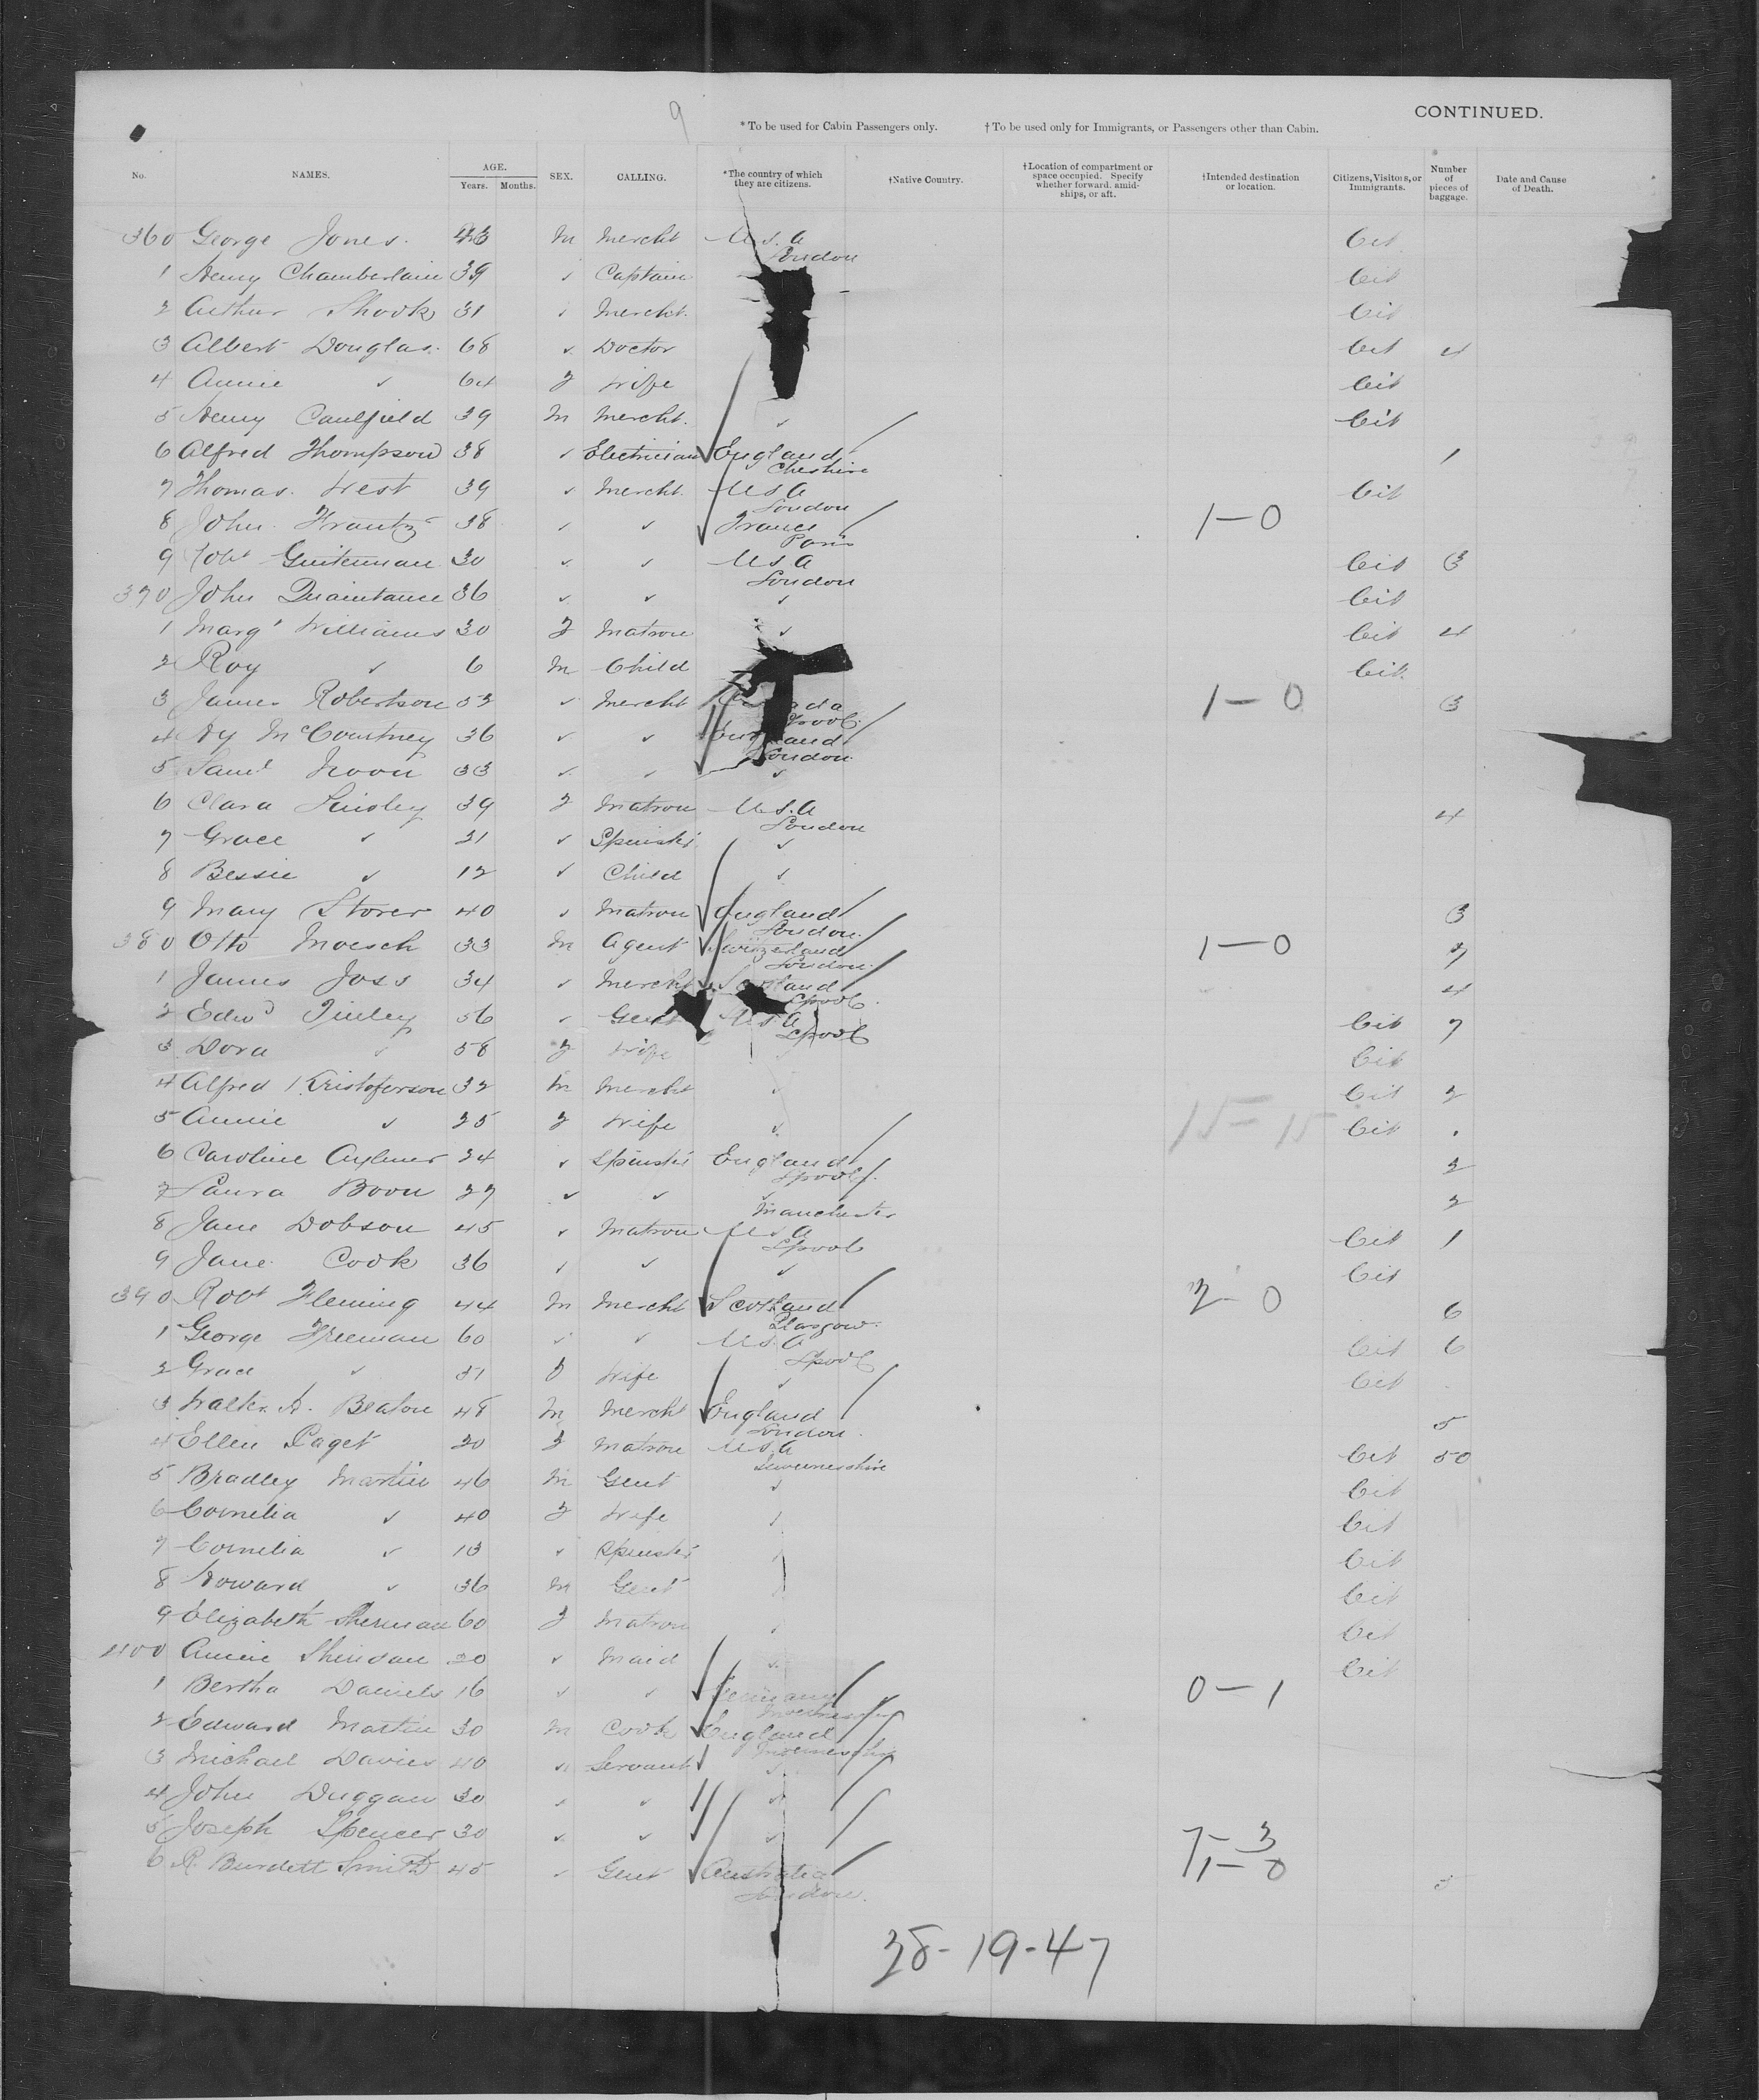 9
* To be used for Cabin Passengers only. † To be used only for Immigrants, or Passengers other than Cabin. CONTINUED.
No. NAMES. AGE. Years. Months. SEX. CALLING. *The country of which they are citizens. †Native Country. †Location of compartment or space occupied. Specify whether forward, amidships, or aft. †Intended destination or location. Citizens, Visitors, or Immigrants. Number of pieces of baggage. Date and Cause of Death.
360 George Jones. 43 M Mercht U.S.A London Cit
1 Henry Chamberlain 39 ✓ Captain Cit
2 Arthur Shook 31 ✓ Mercht. Cit
3 Albert Douglas. 68 ✓ Doctor Cit 4
4 Annie ✓ 64 F Wife Cit
5 Henry Caulfield 39 M Mercht. ✓ Cit
6 Alfred Thompson 38 ✓ Electrician England Cheshire 1
7 Thomas. West 39 ✓ Mercht. U.S.A London Cit
8 John. Frantz 38 ✓ ✓ France Paris 1–0
9 Robt Guiterman 30 ✓ ✓ U.S.A London Cit 3
370 John Quaintance 36 ✓ ✓ ✓ Cit
1 Margt Williams 30 F Matron ✓ Cit 4
2 Roy ✓ 6 M Child Cit.
3 James Robertson 53 ✓ Mercht Lpool. 1–0 3
4 Hy McCourtney 36 ✓ ✓ England London
5 Saml Noon 33 ✓ ✓ ✓
6 Clara 39 F Matron U.S.A London 4
7 Grace ✓ 21 ✓ Spinster ✓
8 Bessie ✓ 12 ✓ Child ✓
9 Mary Storer 40 ✓ Matron England London. 3
380 Otto Moesch 33 M Agent Switzerland London. 1–0 7
1 James Joss 34 ✓ Mercht Scotland Lpool. 4
2 Edwd Tinley 56 ✓ Gent U.S.A Lpool Cit 7
3 Dora ✓ 58 F Wife Cit
4 Alfred Kristoferson 32 M Mercht ✓ Cit 2
5 Annie ✓ 25 F Wife ✓ 15–15 Cit
6 Caroline Aylmer 24 ✓ Spinster England Lpool. 2
7 Laura Boon 27 ✓ ✓ ✓ Manchester 2
8 Jane Dobson 45 ✓ Matron U.S.A Lpool Cit 1
9 Jane. Cook 36 ✓ ✓ ✓ Cit
390 Robt Fleming 44 M Mercht Scotland Glasgow. 2–0 6
1 George Freeman 60 ✓ ✓ U.S.A Lpool Cit 6
2 Grace ✓ F Wife ✓ Cit
3 Walter A. Beaton 48 M Mercht England London. 5
4 Ellen Paget 30 F Matron U.S.A Invernesshire Cit 50
5 Bradley Martin 46 M Gent ✓ Cit
6 Cornelia ✓ 40 F Wife ✓ Cit
7 Cornelia ✓ 13 ✓ Spinster Cit
8 Howard ✓ 36 M Gent Cit
9 Elizabeth Sherman 60 F Matron ✓ Cit
400 Annie Sheridan 20 ✓ Maid ✓ Cit
1 Bertha Daniels 16 ✓ ✓ Germany 0–1
2 Edward Martin 30 M Cook England Invernesshire
3 Michael Davies 40 ✓ Servant ✓
4 John Duggan 30 ✓ ✓ ✓
5 Joseph Spencer 30 ✓ ✓ ✓ 7–3
6 R. Burdett Smith 45 ✓ Gent Australia London. 1–0
28-19-47